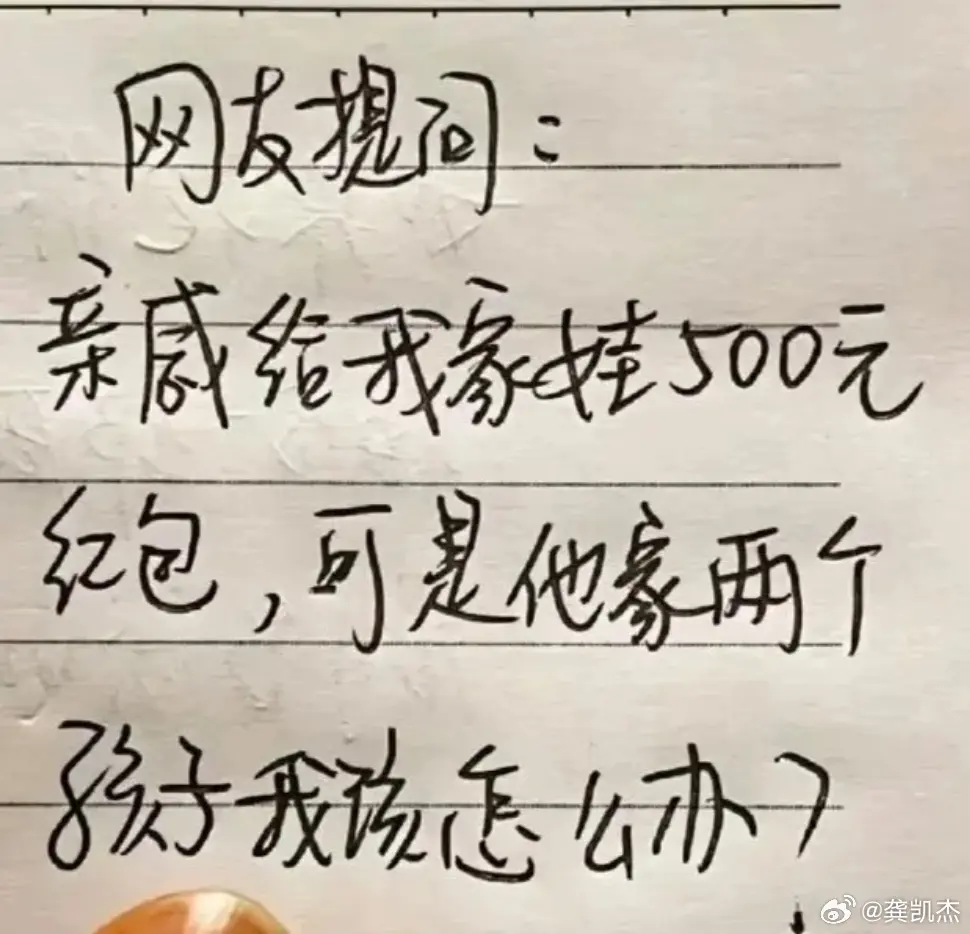 网友提问：
亲戚给我家娃500元
红包，可是他家两个
孩子我该怎么办？
@龚凯杰